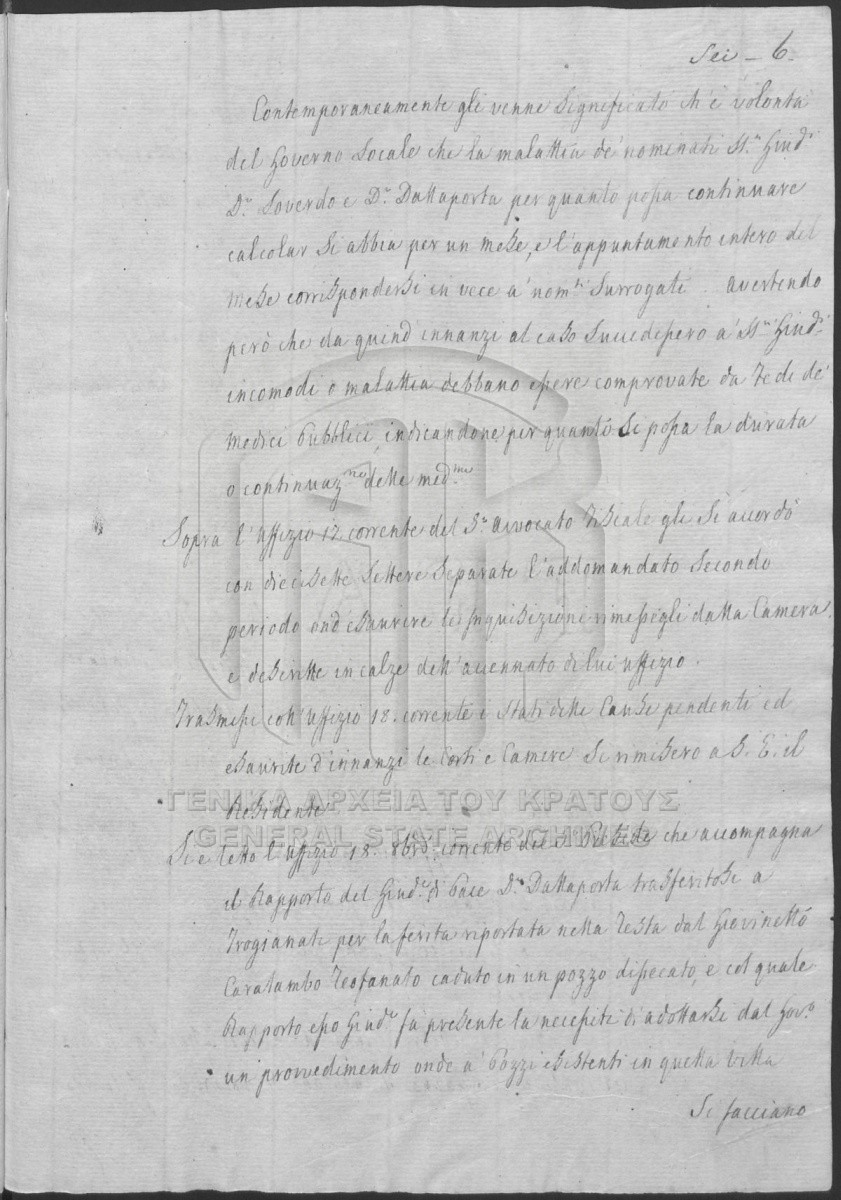 Sei - 6.
Contemporaneamente gli venne significato ch'è volontà
del Governo Locale che la malattia de' nominati SS.ri Giud.i
D.r Soverdo e D.r Dallaporta per quanto possa continuare
calcolar si abbia per un mese, e l'appuntamento intero del
mese corrispondersi in vece a' nom.ti Surrogati. avertendo
però che da quind'innanzi al caso succedessero a' SS.ri Giud.i
incomodi o malattia debbano essere comprovate da Fede de'
Medici Pubblici, indicandone per quanto si possa la durata
o continuaz.ne delle med.me
Sopra l'Uffizio 17 corrente del S.r avvocato Fiscale gli si accordò
con diecisette Lettere separate l'addomandato secondo
periodo ond'esaurire le Inquisizioni rimessegli dalla Camera
e descritte in calze dell'accennato di lui uffizio.
Trasmessi coll'Uffizio 18. corrente i Stati delle Cause pendenti ed
esaurite d'innanzi le Corti e Camere si rimisero a S. E. il
Residente
ΓΕΝΙΚΑ ΑΡΧΕΙΑ ΤΟΥ ΚΡΑΤΟΥΣ
GENERAL STATE ARCHIVES
Si è letto l'uffizio 18. 8bre corrente del che accompagna
il Rapporto del Giud.e di Pace D.r Dallaporta trasferitosi a
Trogianata per la ferita riportata nella testa dal Giovinetto
Caralambo Teofanato caduto in un pozzo dissecato, e col quale
Rapporto esso Giud.e fà presente la necessità di adottarsi dal Gov.o
un provvedimento onde a' Pozzi esistenti in quella Villa
Si facciano